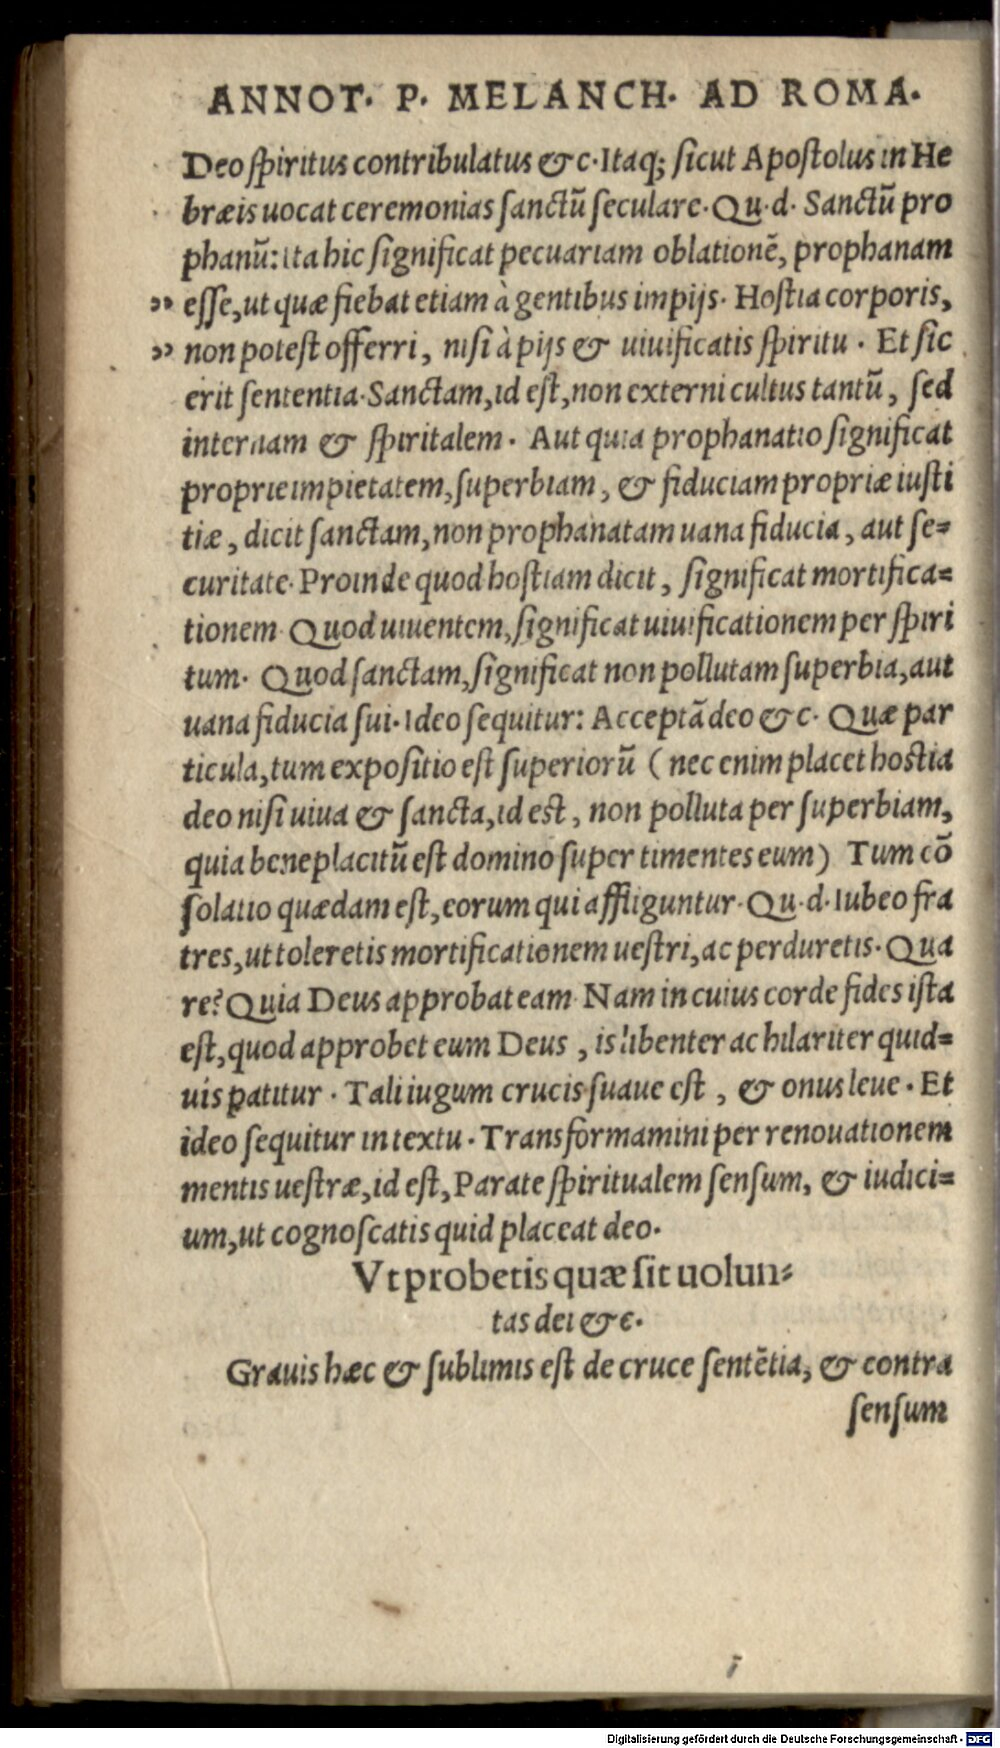 ANNOT. P. MELANCH. AD ROMA.
Deo ſpiritus contribulatus &c. Itaq; ſicut Apoſtolus in He
bræis uocat ceremonias ſanctū ſeculare. Qu. d. Sanctū pro
phanū: ita hic ſignificat pecuariam oblationē, prophanam
„ eſſe, ut quæ fiebat etiam à gentibus impijs. Hoſtia corporis,
„ non poteſt offerri, niſi à pijs & uiuificatis ſpiritu. Et ſic
erit ſententia. Sanctam, id eſt, non externi cultus tantū, ſed
internam & ſpiritalem. Aut quia prophanatio ſignificat
proprie impietatem, ſuperbiam, & fiduciam propriæ iuſti
tiæ, dicit ſanctam, non prophanatam uana fiducia, aut ſe=
curitate. Proinde quod hoſtiam dicit, ſignificat mortifica=
tionem Quod uiuentem, ſignificat uiuificationem per ſpiri
tum. Quod ſanctam, ſignificat non pollutam ſuperbia, aut
uana fiducia ſui. Ideo ſequitur: Acceptā deo &c. Quæ par
ticula, tum expoſitio eſt ſuperiorū (nec enim placet hostia
deo niſi uiua & ſancta, id est, non polluta per ſuperbiam,
quia beneplacitū eſt domino ſuper timentes eum) Tum cō
ſolatio quædam eſt, eorum qui affliguntur. Qu. d. Iubeo fra
tres, ut toleretis mortificationem ueſtri, ac perduretis. Qua
re? Quia Deus approbat eam. Nam in cuius corde fides iſta
eſt, quod approbet eum Deus, is libenter ac hilariter quid=
uis patitur. Tali iugum crucis ſuaue eſt, & onus leue. Et
ideo ſequitur in textu. Transformamini per renouationem
mentis ueſtræ, id eſt, Parate ſpiritualem ſenſum, & iudici=
um, ut cognoſcatis quid placeat deo.
Vt probetis quæ ſit uolun=
tas dei &c.
Grauis hæc & ſublimis eſt de cruce ſentētia, & contra
ſenſum
Digitalisierung gefördert durch die Deutsche Forschungsgemeinschaft - DFG